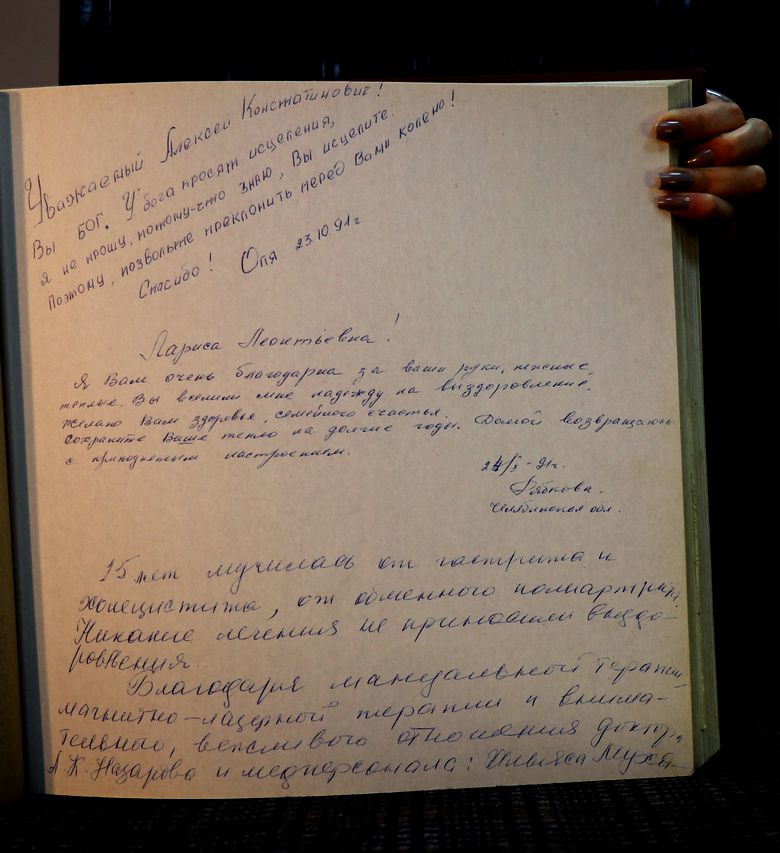 Уважаемый Алексей Констатинович!
Вы БОГ. У бога просят исцеления,
я не прошу, потому-что знаю, Вы исцелите.
Поэтому, позвольте преклонить перед Вами колено!
Спасибо! Оля 23.10.91г.
Лариса Леонтьевна!
Я Вам очень благодарна за ваши руки, нежные,
теплые. Вы вселили мне надежду на выздоровление.
Желаю Вам здоровья, семейного счастья.
Сохраните Ваше тепло на долгие годы. Домой возвращаюсь
с приподнятым настроением.
24/X-91г.
Рябкова.
Челябинская обл.
15 лет мучилась от гастрита и
холецистита, от обменного полиартрита.
Никакие лечения не приносили выздо-
ровления.
Благодаря мануальной терапии,
магнитно-лазерной терапии и внима-
тельного, вежливого отношения доктора
А.К. Назарова и медперсонала: Ильяса Муха-